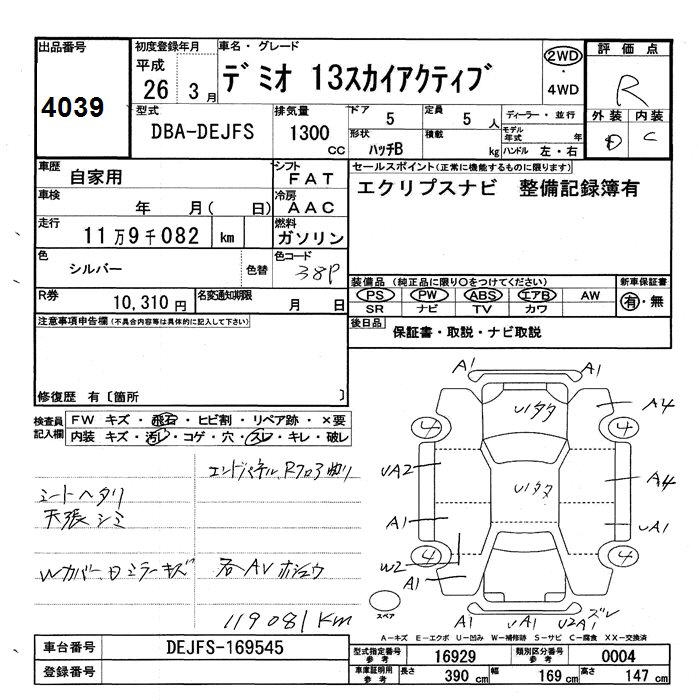 出品番号
4039
初度登録年月
平成
26年 3月
車名・グレード
デミオ 13スカイアクティブ
2WD
・
4WD
評価点
R
外装 内装
D C
型式
DBA-DEJFS
排気量
1300
CC
ドア
5
定員
5人
形状
ハッチB
積載
kg
ディーラー・並行
モデル年式 年
ハンドル 左・右
車歴
自家用
シフト
FAT
車検
年 月( 日)
冷房
AAC
走行
11万9千082 km
燃料
ガソリン
色
シルバー
色替
色コード
38P
R券
10,310円
名変通知期限
月 日
セールスポイント(正常に機能するものに限ります)
エクリプスナビ 整備記録簿有
装備品 (純正品に限り○をつけてください)
PS PW ABS エアB AW
SR ナビ TV カワ
新車保証書
有・無
後日品
保証書・取説・ナビ取説
注意事項申告欄(不具合内容等は具体的に記入して下さい)
修復歴 有〔箇所 〕
検査員記入欄
FW キズ・飛石・ヒビ割・リペア跡・×要
内装 キズ・汚レ・コゲ・穴・スレ・キレ・破レ
エンドパネル、Rフロア曲り
シートヘタリ
天張シミ
Wカバー、日ミラーキズ
各AVホシュウ
119081Km
A1 A1
U1タタ
A4
4 4
UA2
U1タタ
A4
A1
UA1
W2
4 4
A1
スペア
A1 UA1 U2A1 ズレ
A-キズ E-エクボ U-凹み W-補修跡 S-サビ C-腐食 XX-交換済
車台番号
DEJFS-169545
登録番号
型式指定番号
参考
16929
類別区分番号
参考
0004
車庫証明用
参考
長さ
390 cm
幅
169 cm
高さ
147 cm